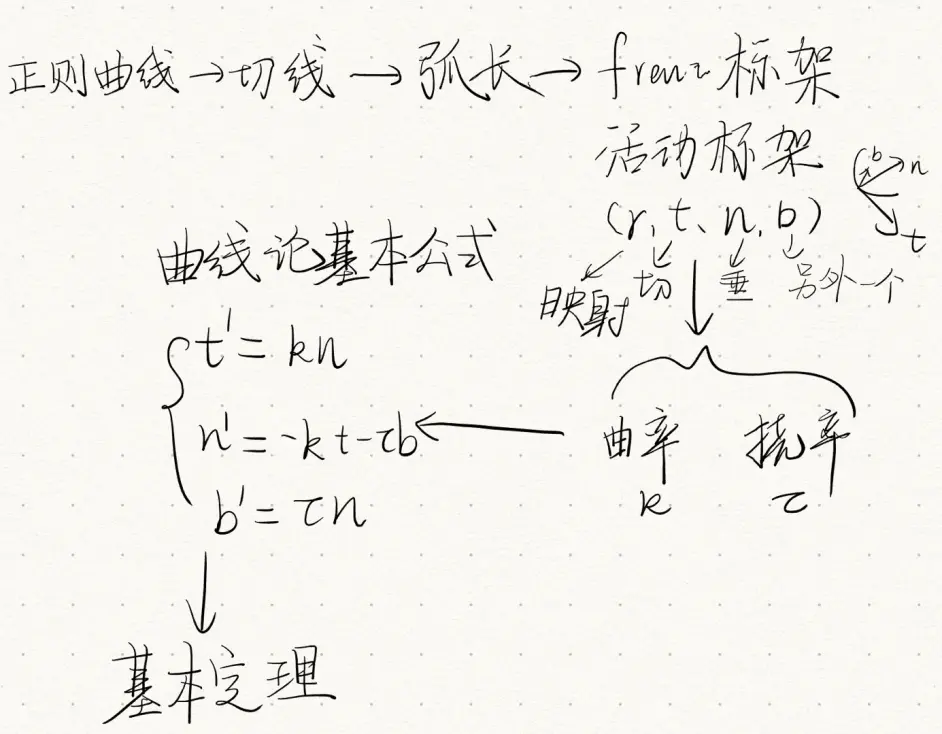 正则曲线→切线→弧长→frenz标架
活动标架
b n
(r、t、n、b) t
映射 切 垂 另外一个
曲线论基本公式
t'=kn
n'=-kt-τb
b'=τn
曲率 挠率
k τ
基本定理